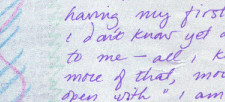 having my first
I don't know yet a
to me — all, k
more of that, mor
open with " I am